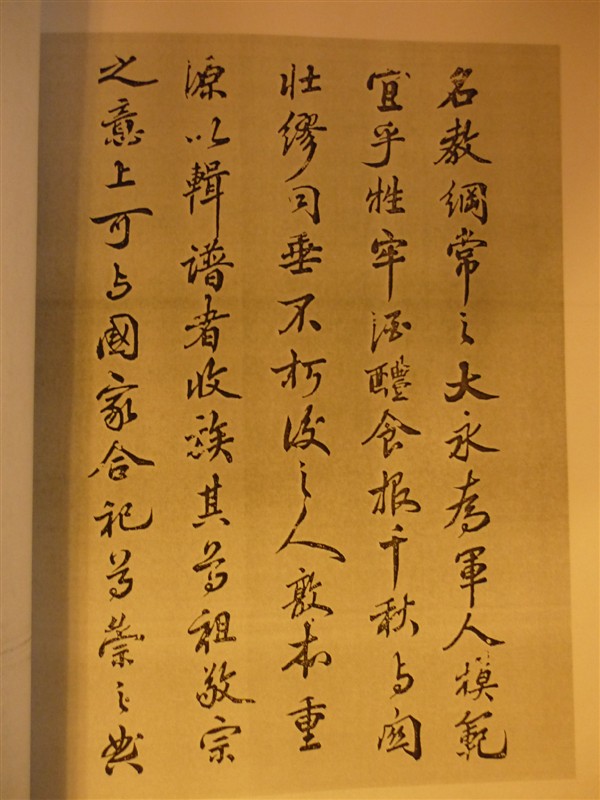 名教綱常之大永為軍人模範
宜乎牲牢酒醴食报千秋与関
壮繆同垂不朽後之人敦本重
源以輯譜者收族其尊祖敬宗
之意上可与國家合祀尊崇之典